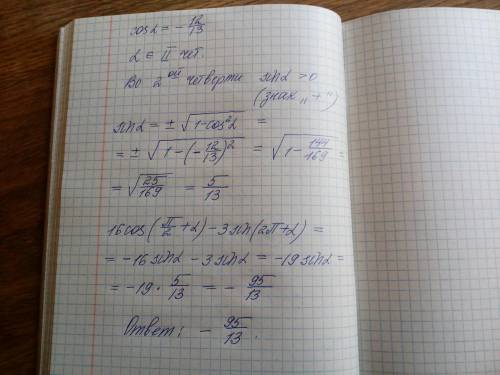 cosα = - 12/13
α ∈ II чет.
Во 2ой четверти sinα > 0
(знак „+")
sinα = ± √(1-cos²α) =
= ± √(1-(-12/13)²) = √(1-144/169) =
= √(25/169) = 5/13
16cos(π/2+α)-3sin(2π+α) =
= -16sinα - 3sinα = -19sinα =
= -19 · 5/13 = - 95/13
Ответ: - 95/13.